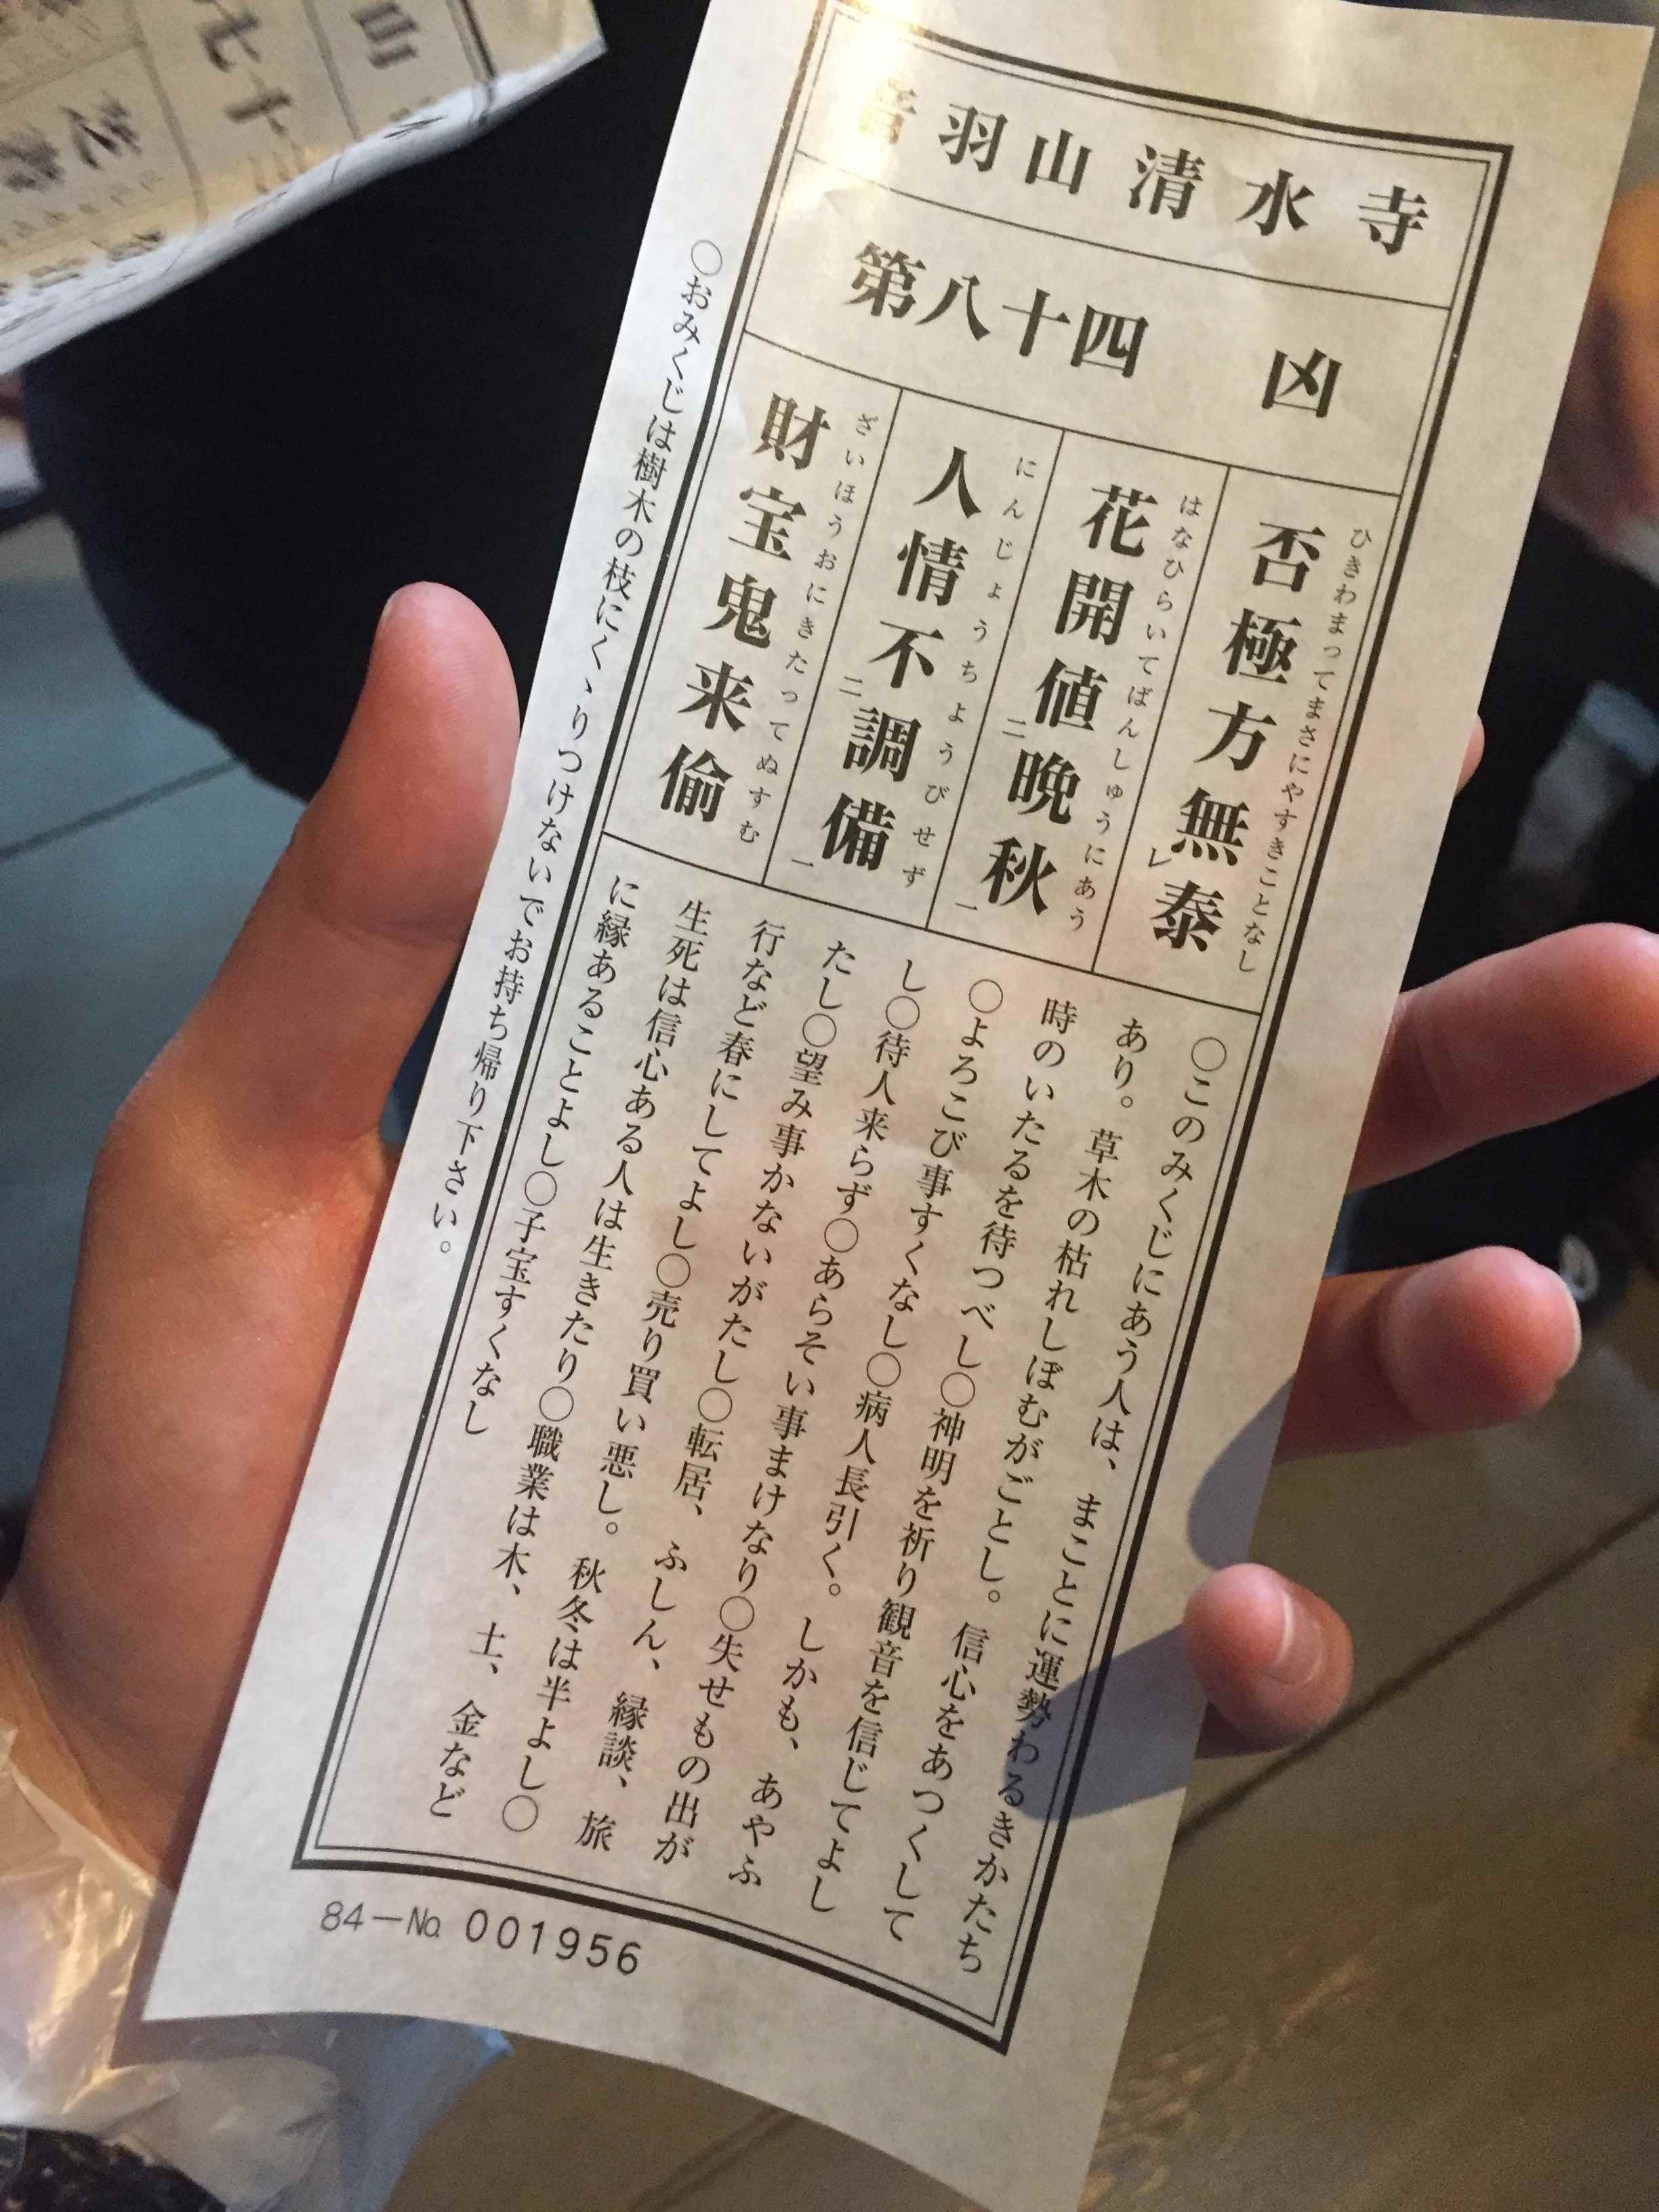 音羽山清水寺
第八十四　凶
否極方無レ泰
ひきわまってまさにやすきことなし
花開値二晩秋一
はなひらいてばんしゅうにあう
人情不二調備一
にんじょうちょうびせず
財宝鬼来偷
ざいほうおにきたってぬすむ
〇このみくじにあう人は、まことに運勢わるきかたち
あり。草木の枯れしぼむがごとし。信心をあつくして
時のいたるを待つべし〇神明を祈り観音を信じてよし
〇よろこび事すくなし〇病人長引く。しかも、あやふ
し〇待人来らず〇あらそい事まけなり〇失せもの出が
たし〇望み事かないがたし〇転居、ふしん、縁談、旅
行など春にしてよし〇売り買い悪し。秋冬は半よし〇
生死は信心ある人は生きたり〇職業は木、土、金など
に縁あることよし〇子宝すくなし
〇おみくじは樹木の枝にくゝりつけないでお持ち帰り下さい。
84－No. 001956
山
七十